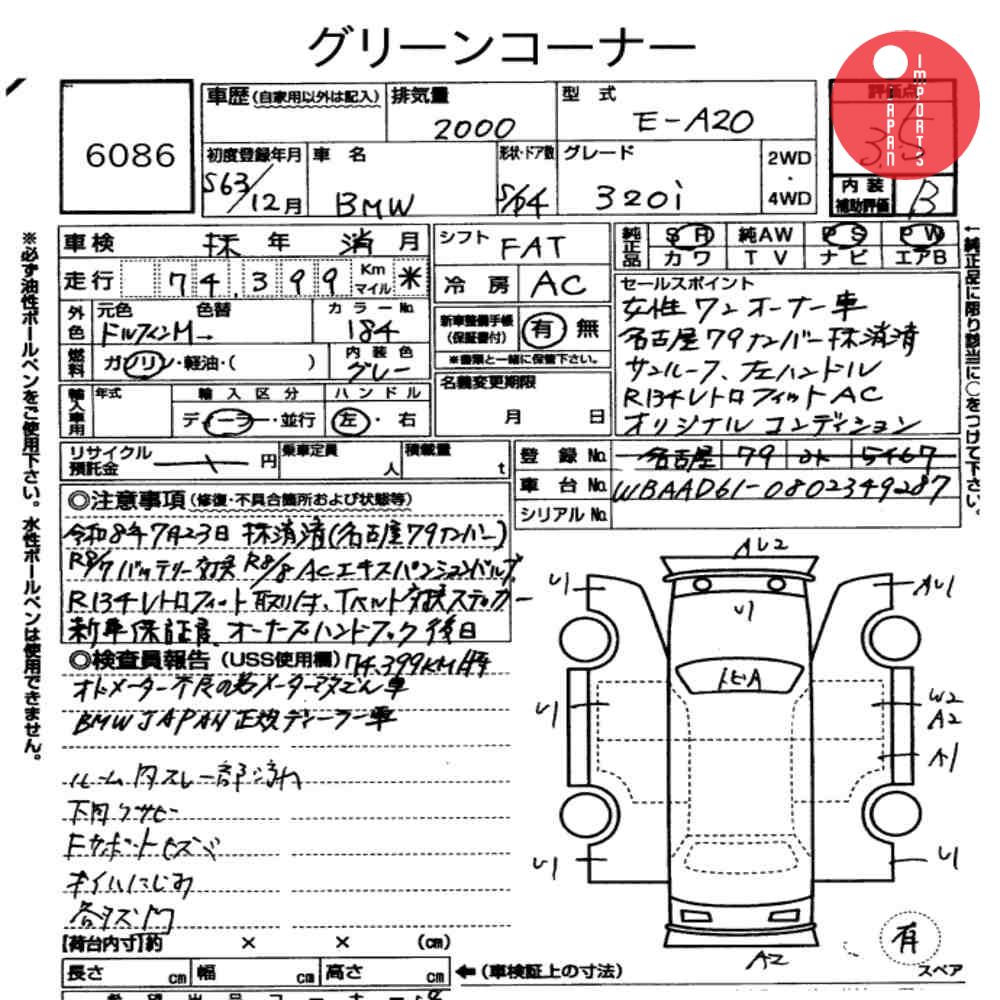 グリーンコーナー
6086
車歴(自家用以外は記入)
排気量
2000
型 式
E-A20
評価点
3.5
JAPAN
IMPORTS
初度登録年月
S63/12月
車 名
BMW
形状・ドア数
S/4
グレード
320i
2WD
・
4WD
内 装
補助評価
B
※必ず油性ボールペンをご使用下さい。水性ボールペンは使用できません。
車検 抹 年 消 月
走行 74,399 Km マイル 米
シフト FAT
冷 房 AC
純正品 SR 純AW PS PW
カワ TV ナビ エアB
外色 元色 色替
ドルフィンM→
カラーNo.
184
新車整備手帳
(保証書付)
有 無
※書類と一緒に保管下さい。
燃料 ガソリン・軽油・( )
内 装 色
グレー
名義変更期限
月 日
輸入車用 年式
輸 入 区 分
ディーラー・並行
ハ ン ド ル
左・右
セールスポイント
女性ワンオーナー車
名古屋79ナンバー抹消済
サンルーフ、左ハンドル
R134レトロフィットAC
オリジナルコンディション
↑純正品に限り該当に○をつけて下さい。
リサイクル預託金 円
乗車定員 人
積載量 t
登 録 No. 名古屋 79 5467
車 台 No. WBAAD61-0802349287
シリアルNo.
◎注意事項(修復・不具合箇所および状態等)
令和8年7月23日 抹消済(名古屋79ナンバー)
R8/7バッテリー交換 R8/8 ACエキスパンションバルブ
R134レトロフィット取り付、Tベルト交換ステッカー
新車保証書、オーナーズハンドブック後日
◎検査員報告(USS使用欄) 74,399KM
BMW JAPAN正規ディーラー車
ルーム内スレ一部汚れ
下回りサビ
オイルにじみ
AU2
U1
U1
AU1
U1
W2
A2
A1
U1
U1
A2
有
スペア
【荷台内寸】約 × × (cm)
長さ cm 幅 cm 高さ cm
←(車検証上の寸法)